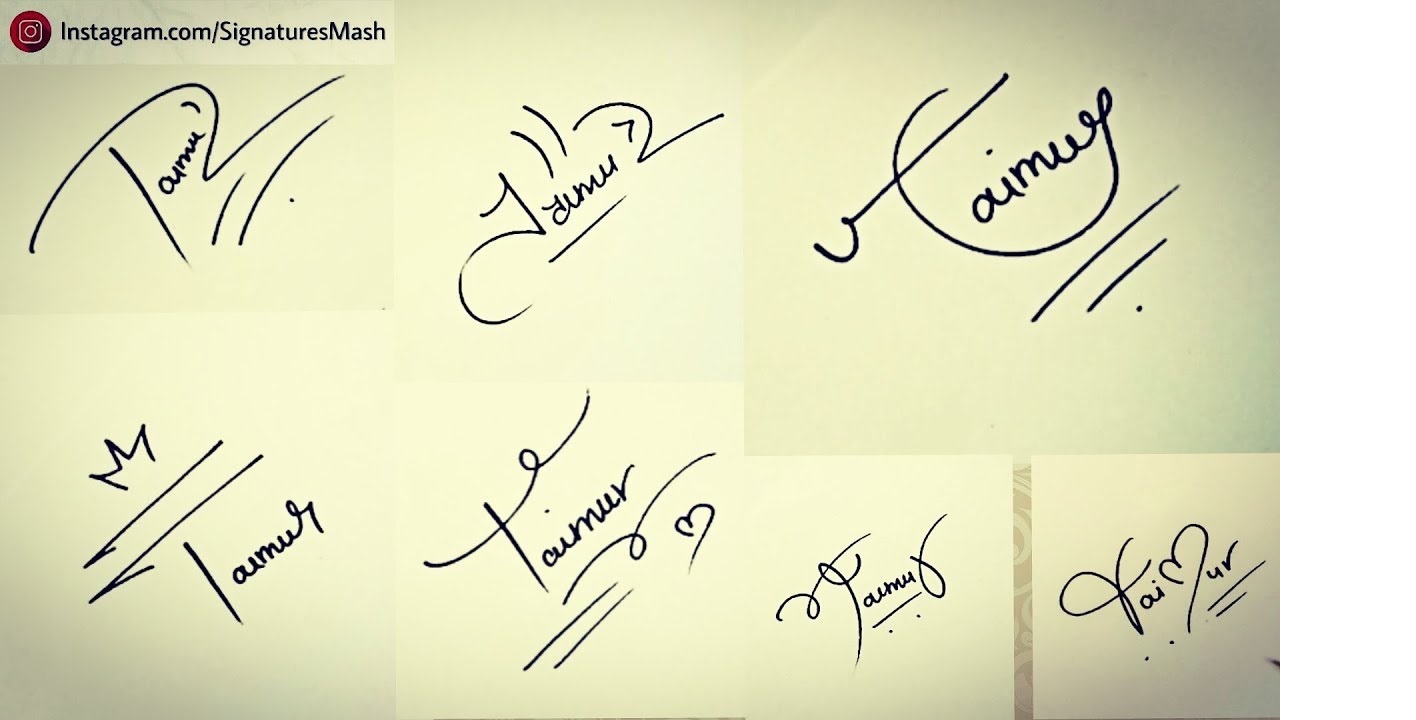 Instagram.com/SignaturesMash
Taimur
Taimur
Taimur
Taimur
Taimur
Taimur
Taimur